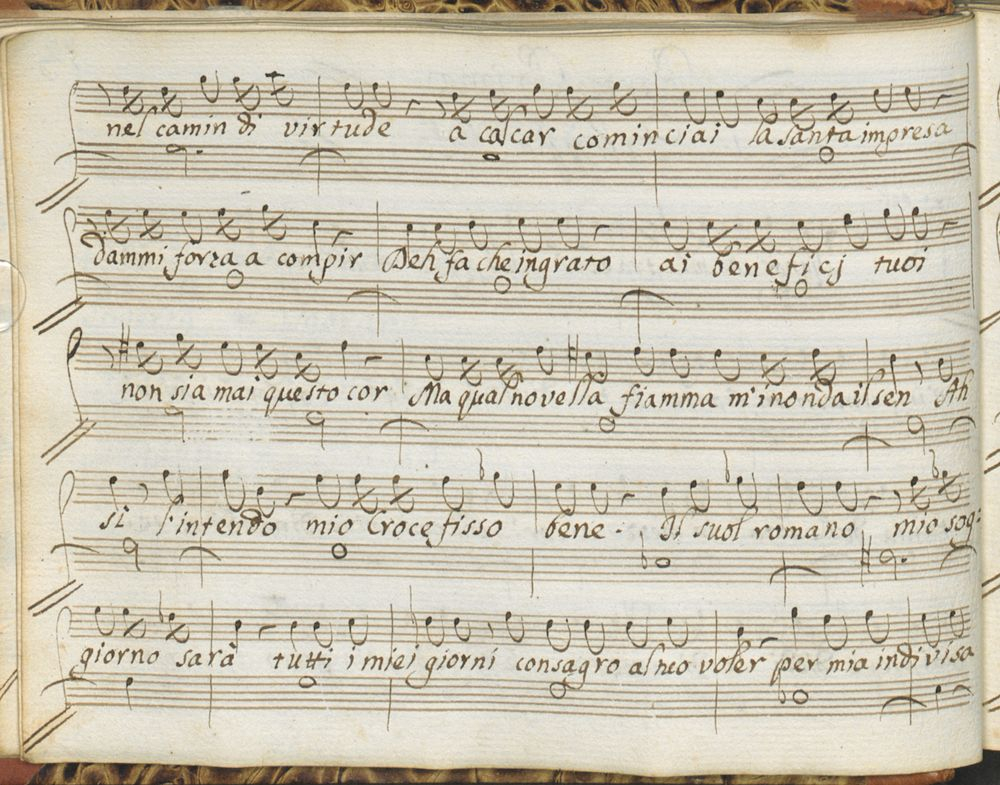 nel camin di virtude a calcar cominciai la santa impresa
dammi forza a compir Deh fa che ingrato ai beneficj tuoi
non sia mai questo cor Ma qual novella fiamma m'inonda il sen Ah
si l'intendo mio Crocefisso bene. Il suol romano mio sog:
giorno sarà tutti i miei giorni consagro al tuo voler per mia indivisa